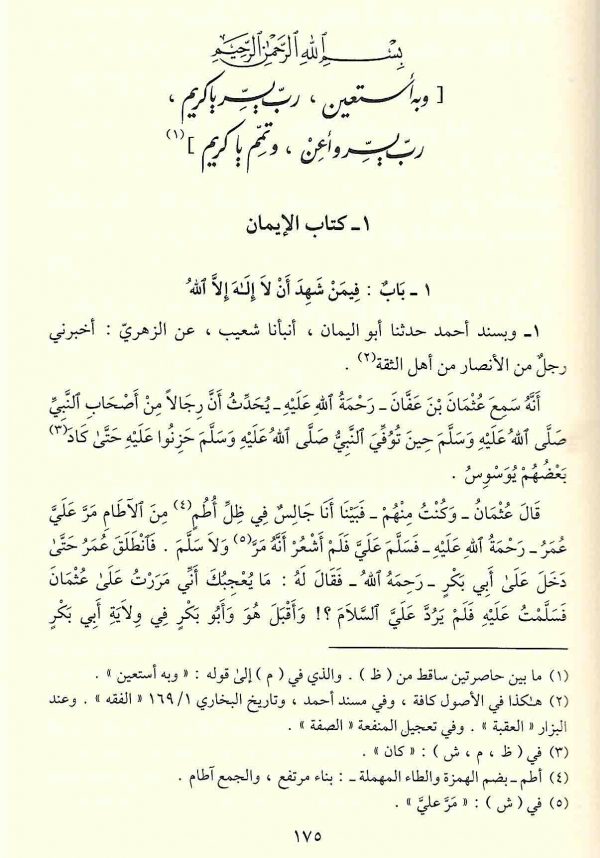 بِسْمِ اللهِ الرَّحْمٰنِ الرَّحِيْمِ
[ وبه أستعين ، ربّ يسّر يا كريم ،
ربّ يسّر وأعِنْ ، وتمّم يا كريم ](١)
١ـ كتاب الإيمان
١ ـ بَابٌ : فِيمَنْ شَهِدَ أَنْ لاَ إِلَـٰهَ إِلاَّ ٱللهُ
١ـ وبسند أحمد حدثنا أبو اليمان ، أنبأنا شعيب ، عن الزهريّ : أخبرني
رجلٌ من الأنصار من أهل الثقة(٢) .
أَنَّهُ سَمِعَ عُثْمَانَ بْنَ عَفَّانَ ـ رَحْمَةُ اللهِ عَلَيْهِ ـ يُحَدِّثُ أَنَّ رِجَالاً مِنْ أَصْحَابِ النَّبِيِّ
صَلَّى ٱللهُ عَلَيْهِ وَسَلَّمَ حِينَ تُوُفِّيَ النَّبِيُّ صَلَّى ٱللهُ عَلَيْهِ وَسَلَّمَ حَزِنُوا عَلَيْهِ حَتَّىٰ كَادَ(٣)
بَعْضُهُمْ يُوَسْوِسُ .
قَالَ عُثْمَانُ ـ وَكُنْتُ مِنْهُمْ ـ فَبَيْنَا أَنَا جَالِسٌ فِي ظِلِّ أُطُمٍ(٤) مِنَ ٱلآطَامِ مَرَّ عَلَيَّ
عُمَرُ ـ رَحْمَةُ اللهِ عَلَيْهِ ـ فَسَلَّمَ عَلَيَّ فَلَمْ أَشْعُرْ أَنَّهُ مَرَّ(٥) وَلاَ سَلَّمَ . فَٱنْطَلَقَ عُمَرُ حَتَّىٰ
دَخَلَ عَلَىٰ أَبِي بَكْرٍ ـ رَحِمَهُ ٱللهُ ـ فَقَالَ لَهُ : مَا يُعْجِبُكَ أَنِّي مَرَرْتُ عَلَىٰ عُثْمَانَ
فَسَلَّمْتُ عَلَيْهِ فَلَمْ يَرُدَّ عَلَيَّ ٱلسَّلاَمَ ؟! وَأَقْبَلَ هُوَ وَأَبُو بَكْرٍ فِي وِلاَيَةِ أَبِي بَكْرٍ
(١) ما بين حاصرتين ساقط من ( ظ ) . والذي في ( م ) إلىٰ قوله : « وبه أستعين » .
(٢) هـٰكذا في الأصول كافة ، وفي مسند أحمد ، وتاريخ البخاري ١/ ١٦٩ « الفقه » . وعند
البزار « العقبة » . وفي تعجيل المنفعة « الصفة » .
(٣) في ( ظ ، م ، ش ) : « كان » .
(٤) أطم ـ بضم الهمزة والطاء المهملة ـ : بناء مرتفع ، والجمع آطام .
(٥) في ( ش ) : « مَرَّ عليَّ » .
١٧٥